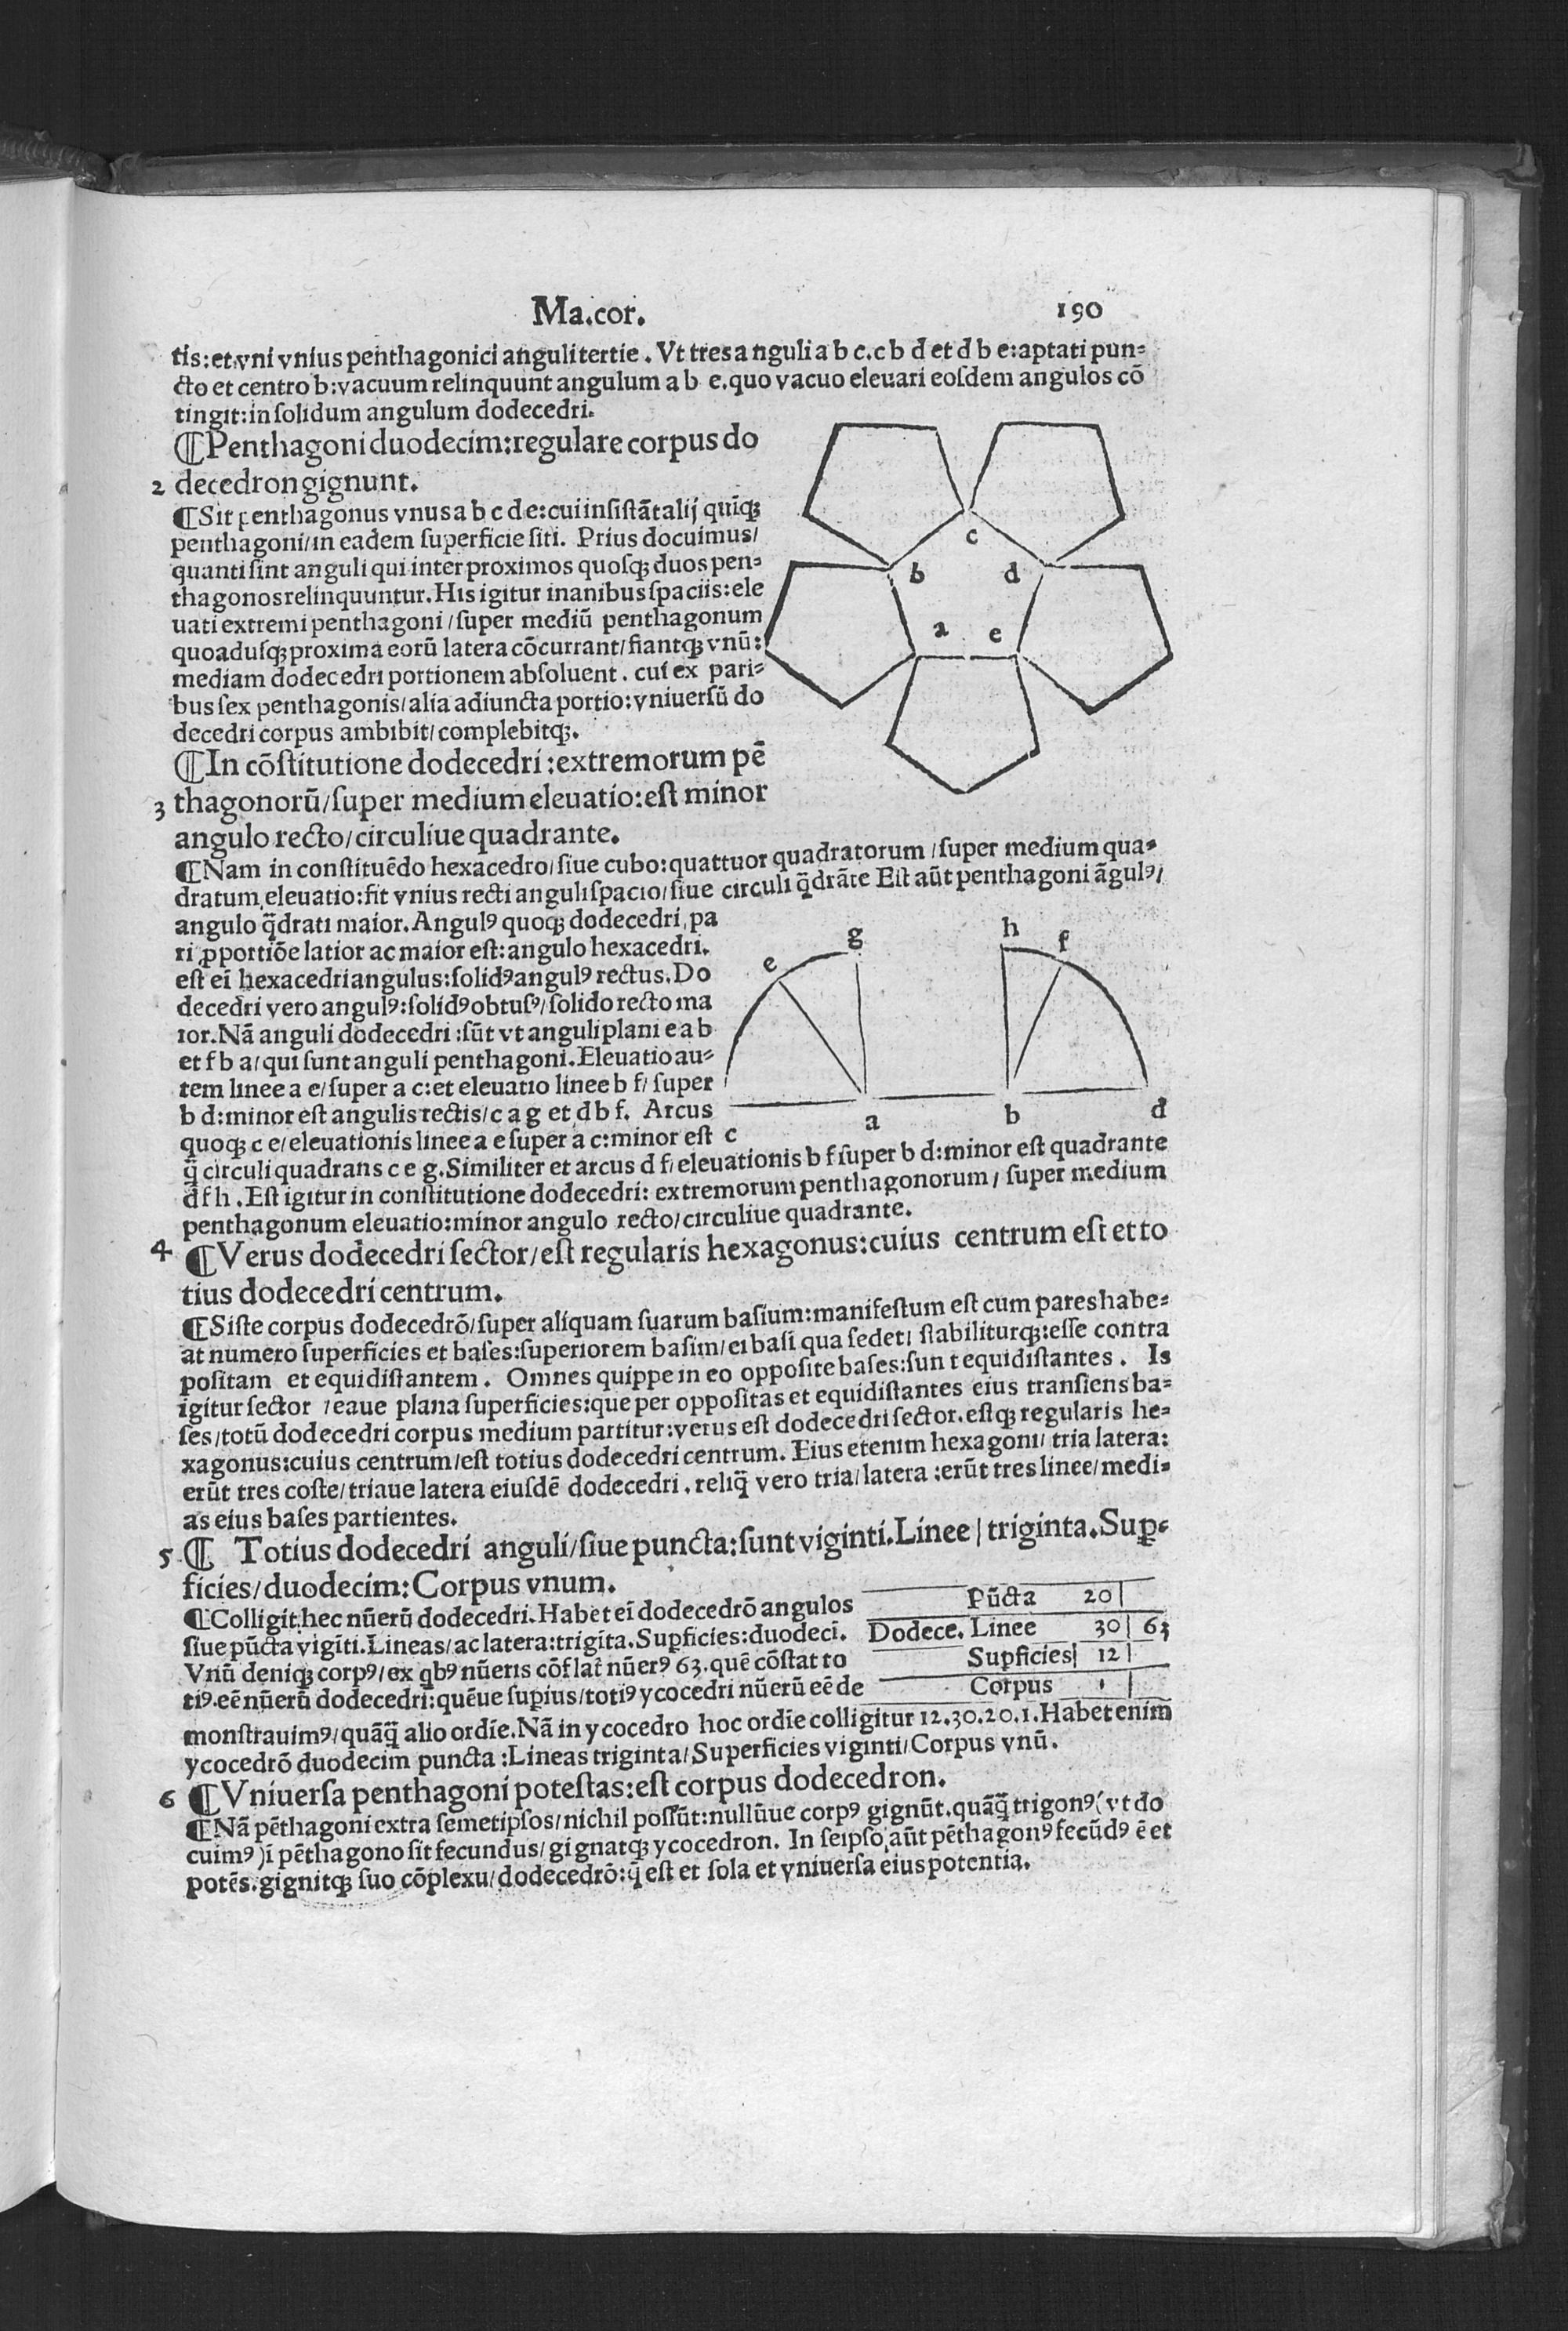 Ma.cor. 190
tis:et vni vnius penthagonici anguli tertie. Vt tres anguli a b c.c b d et d b e:aptati pun=
cto et centro b:vacuum relinquunt angulum a b e.quo vacuo eleuari eosdem angulos cō
tingit:in solidum angulum dodecedri.
¶Penthagoni duodecim:regulare corpus do
2 decedron gignunt.
¶Sit penthagonus vnus a b c d e:cui insistāt alij quīqꝫ
penthagoni/in eadem superficie siti. Prius docuimus/
quanti sint anguli qui inter proximos quosqꝫ duos pen=
thagonos relinquuntur. His igitur inanibus spaciis:ele
uati extremi penthagoni/super mediū penthagonum
quoadusqꝫ proxima eorū latera cōcurrant/fiantqꝫ vnū:
mediam dodecedri portionem absoluent. cui ex pari=
bus sex penthagonis/alia adiuncta portio:vniuersū do
decedri corpus ambibit/complebitqꝫ.
¶In cōstitutione dodecedri:extremorum pē
3 thagonorū/super medium eleuatio:est minor
angulo recto/circuliue quadrante.
¶Nam in constituēdo hexacedro/siue cubo:quattuor quadratorum/super medium qua=
dratum eleuatio:fit vnius recti anguli spacio/siue circuli q̄drāte Est aūt penthagoni āgulꝰ/
angulo q̄drati maior. Angulꝰ quoqꝫ dodecedri pa
ri ꝓportiōe latior ac maior est:angulo hexacedri.
est eī hexacedri angulus:solidꝰ angulꝰ rectus. Do
decedri vero angulꝰ:solidꝰ obtusꝰ/solido recto ma
ior. Nā anguli dodecedri:sūt vt anguli plani e a b
et f b a/qui sunt anguli penthagoni. Eleuatio au=
tem linee a e/super a c:et eleuatio linee b f/super
b d:minor est angulis rectis/c a g et d b f. Arcus
quoqꝫ c e/eleuationis linee a e super a c:minor est
q̄ circuli quadrans c e g. Similiter et arcus d f/eleuationis b f super b d:minor est quadrante
d f h. Est igitur in constitutione dodecedri: extremorum penthagonorum/super medium
penthagonum eleuatio:minor angulo recto/circuliue quadrante.
4 ¶Verus dodecedri sector/est regularis hexagonus:cuius centrum est et to
tius dodecedri centrum.
¶Siste corpus dodecedrō/super aliquam suarum basium:manifestum est cum pares habe=
at numero superficies et bases:superiorem basim/ei basi qua sedet/stabiliturqꝫ:esse contra
positam et equidistantem. Omnes quippe in eo opposite bases:sunt equidistantes. Is
igitur sector/eaue plana superficies:que per oppositas et equidistantes eius transiens ba=
ses/totū dodecedri corpus medium partitur:verus est dodecedri sector.estqꝫ regularis he=
xagonus:cuius centrum/est totius dodecedri centrum. Eius etenim hexagoni/tria latera:
erūt tres coste/triaue latera eiusdē dodecedri. reliq̄ vero tria/latera:erūt tres linee/medi=
as eius bases partientes.
5 ¶ Totius dodecedri anguli/siue puncta:sunt viginti. Linee/triginta. Suꝑ=
ficies/duodecim: Corpus vnum.
¶Colligit hec nūerū dodecedri. Habet eī dodecedrō angulos
siue pūcta vigīti. Lineas/ac latera:trigīta. Suꝑficies:duodecī.
Vnū deniqꝫ corpꝰ/ex qbꝰ nūeris cōflat nūerꝰ 63.quē cōstat to
tiꝰ.eē nūerū dodecedri:quēue suꝑius/totiꝰ ycocedri nūerū eē de
monstrauimꝰ/quāq̄ alio ordīe. Nā in ycocedro hoc ordīe colligitur 12.30.20.1. Habet enim
ycocedrō duodecim puncta: Lineas triginta/Superficies viginti/Corpus vnū.
6 ¶Vniuersa penthagoni potestas:est corpus dodecedron.
¶Nā pēthagoni extra semetipsos/nichil possūt:nullūue corpꝰ gignūt.quāq̄ trigonꝰ(vt do
cuimꝰ)ī pēthagono sit fecundus/gignatqꝫ ycocedron. In seipso aūt pēthagonꝰ fecūdꝰ ē et
potēs.gignitqꝫ suo cōplexu/dodecedrō:q̄ est et sola et vniuersa eius potentia.
c
b d
a e
h
g f
e
a b d
c
Pūcta 20
Dodece. Linee 30 63
Supficies 12
Corpus 1